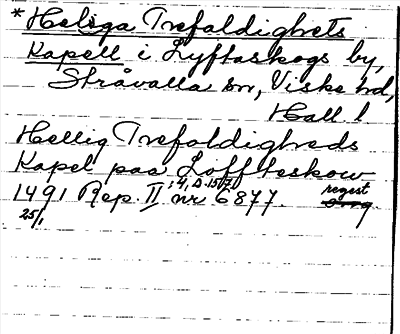 * Heliga Trefaldighets
Kapell i Lyftaskogs by,
Stråvalla sn, Viske hd,
Hall. l
Hellig Trefoldigheds
Kapel paa Loffteskow
1491 Rep. II ; 4, s. 157, nr 6877. regest
25/1